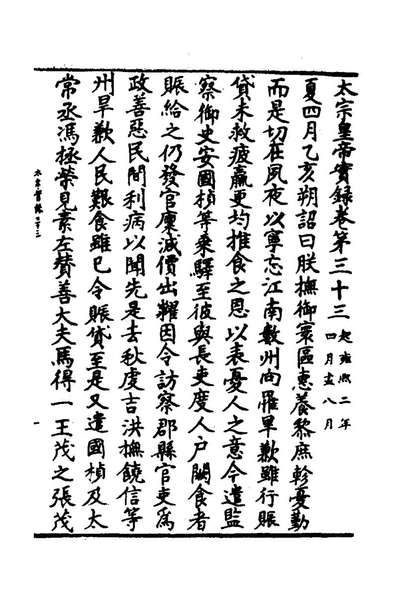 太宗皇帝實録卷第三十三 起雍熙二年四月盡八月
夏四月乙亥朔詔曰朕撫御寰區惠養黎庶軫憂勤
而是切在夙夜以寧忘江南數州向罹旱歉雖行賑
貸未救疲羸更均推食之恩以表憂人之意今遣監
察御史安國楨等乗驛至彼與長吏度人户闕食者
賑給之仍發官廩減價出糶因令訪察郡縣官吏爲
政善惡民間利病以聞先是去秋虔吉洪撫饒信等
州旱歉人民艱食雖已令賑貸至是又遣國楨及太
常丞馮拯榮見素左賛善大夫馬得一王茂之張茂
太宗實録 三十三
一